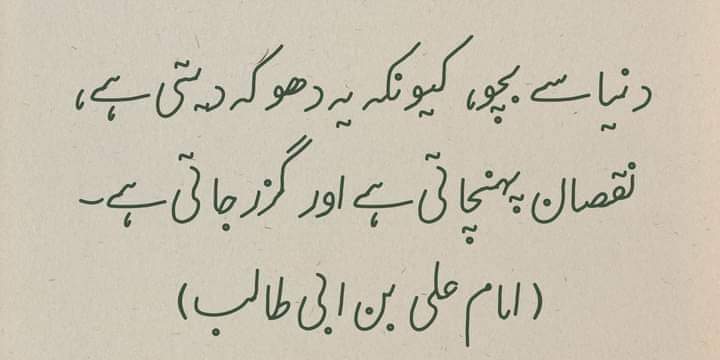 دنیا سے بچو، کیونکہ یہ دھوکہ دیتی ہے،
نقصان پہنچاتی ہے اور گزر جاتی ہے۔
(امام علی بن ابی طالب)